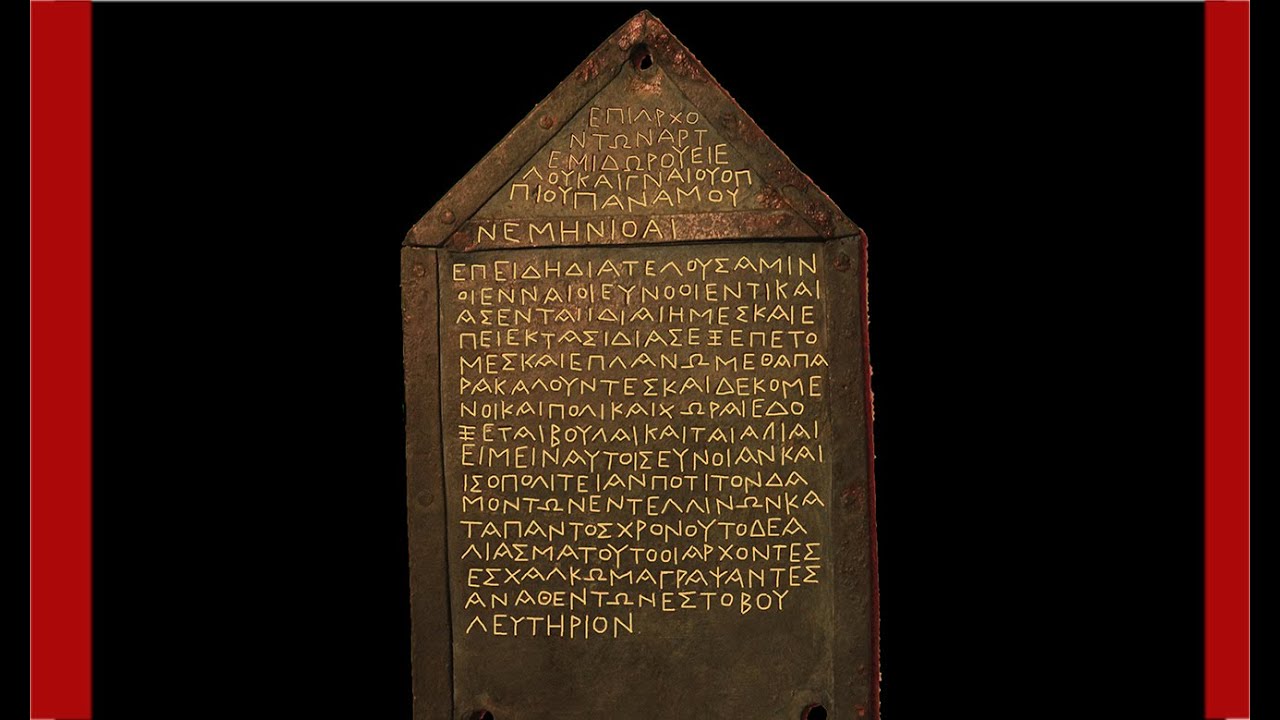 ΕΠΙΑΡΧΟ
ΝΤΩΝΑΡΤ
ΕΜΙΔΩΡΟΥΕΙΕ
ΛΟΥΚΑΙΓΝΑΙΟΥΟΠ
ΠΙΟΥΠΑΝΑΜΟΥ
ΝΕΜΗΝΙΟΑΙ
ΕΠΕΙΔΗΔΙΑΤΕΛΟΥΣΑΜΙΝ
ΟΙΕΝΝΑΙΟΙΕΥΝΟΟΙΕΝΤΙΚΑΙ
ΑΣΕΝΤΑΙΙΔΙΑΙΗΜΕΣΚΑΙΕ
ΠΕΙΕΚΤΑΣΙΔΙΑΣΕΞΕΠΕΤΟ
ΜΕΣΚΑΙΕΠΛΑΝΩΜΕΘΑΠΑ
ΡΑΚΑΛΟΥΝΤΕΣΚΑΙΔΕΚΟΜΕ
ΝΟΙΚΑΙΠΟΛΙΚΑΙΧΩΡΑΙΕΔΟ
ΞΕΤΑΙΒΟΥΛΑΙΚΑΙΤΑΙΑΛΙΑΙ
ΕΙΜΕΙΝΑΥΤΟΙΣΕΥΝΟΙΑΝΚΑΙ
ΙΣΟΠΟΛΙΤΕΙΑΝΠΟΤΙΤΟΝΔΑ
ΜΟΝΤΩΝΕΝΤΕΛΛΙΝΩΝΚΑ
ΤΑΠΑΝΤΟΣΧΡΟΝΟΥΤΟΔΕΑ
ΛΙΑΣΜΑΤΟΥΤΟΟΙΑΡΧΟΝΤΕΣ
ΕΣΧΑΛΚΩΜΑΓΡΑΨΑΝΤΕΣ
ΑΝΑΘΕΝΤΩΝΕΣΤΟΒΟΥ
ΛΕΥΤΗΡΙΟΝ